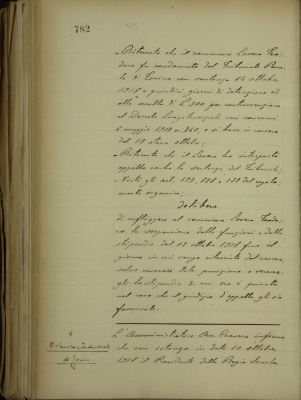 782
Ritenuto che il commesso Lovera Teo-
doro fu condannato dal Tribunale Pena-
le di Torino con sentenza 14 ottobre
1918 a quindici giorni di detenzione ed
alla multa di L. 300, per contravvenzione
al Decreto Luogotenenziale sui consumi
6 maggio 1917 n. 740, e si trova in carcere
dal 12 stesso ottobre;
Ritenuto che il Lovera ha interposto
appello contro la sentenza del Tribunale;
Visti gli art. 127, 128 e 132 del regola-
mento organico;
delibera
di infliggere al commesso Lovera Teodo-
ro la sospensione dalle funzioni e dallo
stipendio dal 12 ottobre 1918 fino al
giorno in cui venga
salvo revocare tale punizione e
gli lo stipendio di cui ora è privato
nel caso che il giudizio d'appello gli sia
favorevole.
4
R. Scuola Industriale
di
L'Amministratore Avv. informa
che con istanza in data 10 ottobre
1918 il Presidente della Regia Scuola